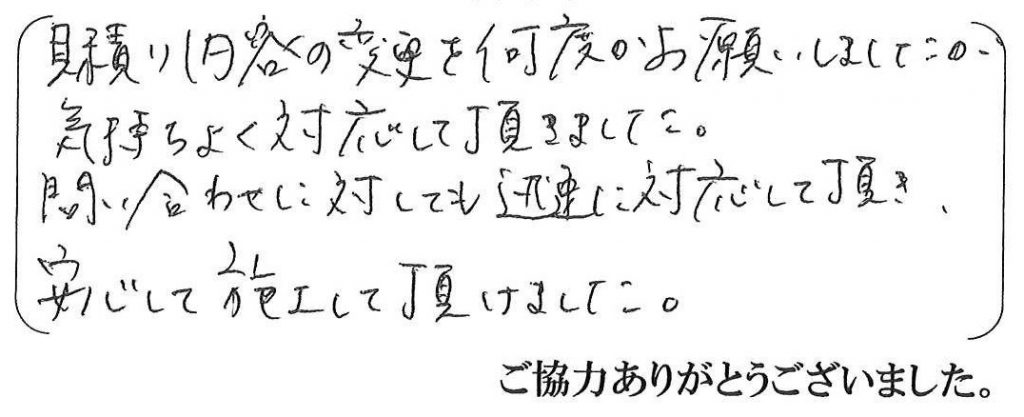 見積り内容の変更を何度かお願いしましたが、
気持ちよく対応して頂きました。
問い合わせに対しても迅速に対応して頂き、
安心して施工して頂けました。
ご協力ありがとうございました。